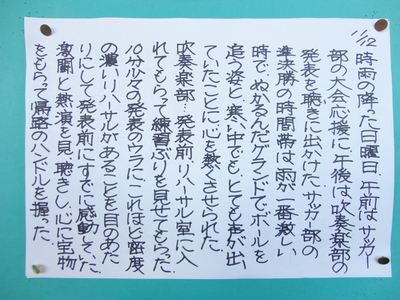 11/12
時雨の降った日曜日。午前はサッカー
部の大会応援に、午後は吹奏楽部の
発表を聴きに出かけた。サッカー部の
準決勝の時間帯は雨が一番激しい
時で、ぬかるんだグランドで、ボールを
追う姿と、寒い中でも、とても声が出
ていたことに心を熱くさせられた。
吹奏楽部…発表前、リハーサル室に入
れてもらって練習ぶりを見せてもらった。
10分少々の発表のウラにこれほど密度
の濃いリハーサルがあることを目のあた
りにして発表前にすでに感動していた。
激闘と熱演を見、聴きし、心に宝物
をもらって帰路のハンドルを握った。